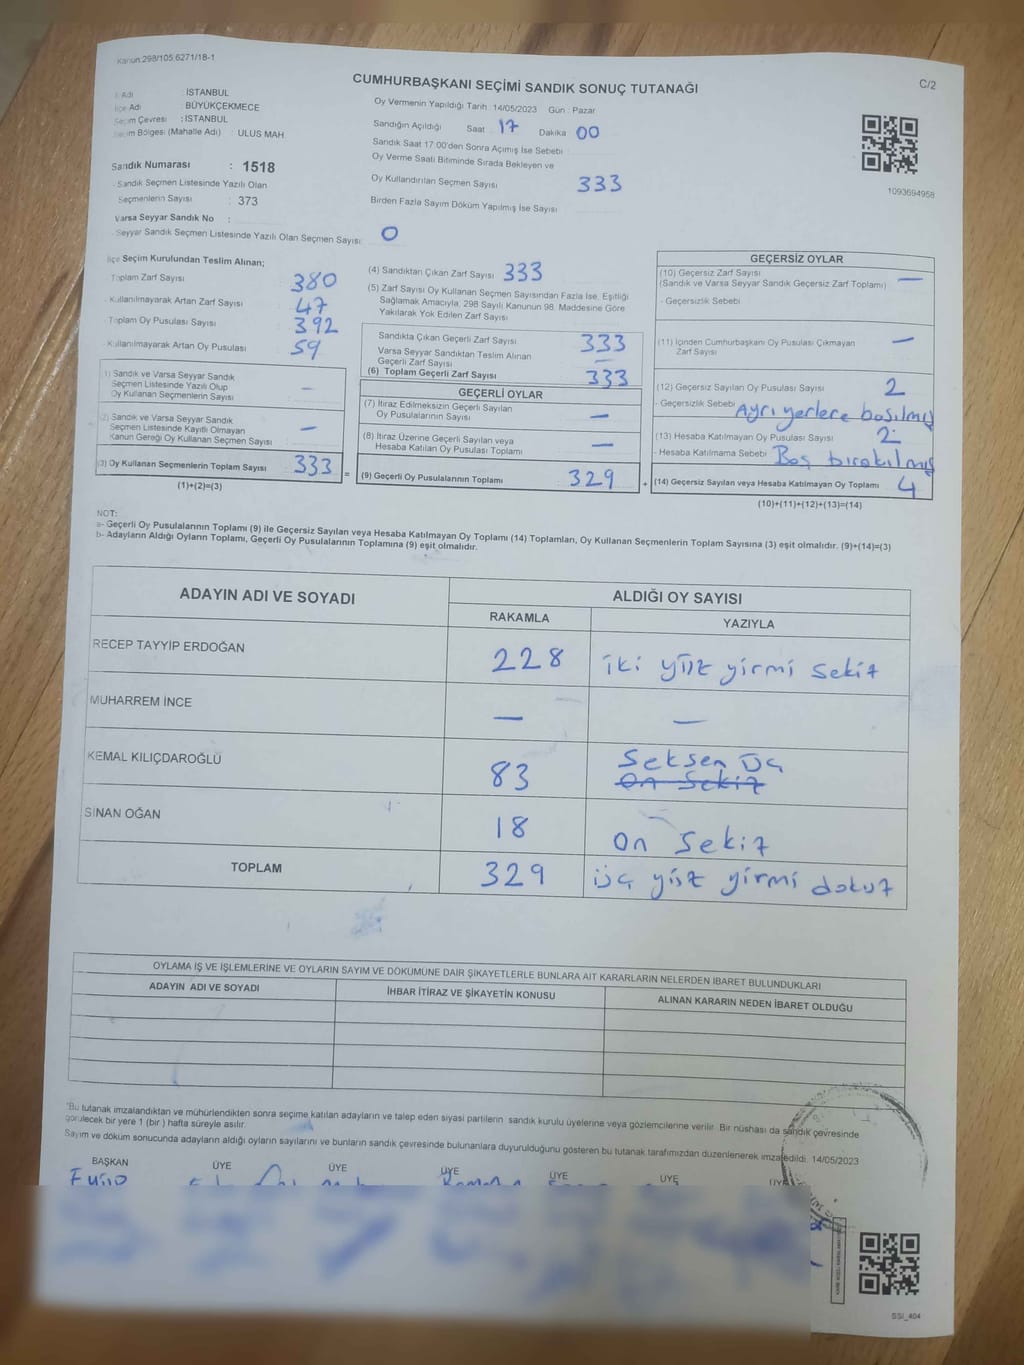 Kanun:298/105,6271/18-1
C/2
CUMHURBAŞKANI SEÇİMİ SANDIK SONUÇ TUTANAĞI
İl Adı İSTANBUL
İlçe Adı BÜYÜKÇEKMECE
Seçim Çevresi : İSTANBUL
Seçim Bölgesi (Mahalle Adı) : ULUS MAH.
Sandık Numarası : 1518
- Sandık Seçmen Listesinde Yazılı Olan
Seçmenlerin Sayısı : 373
Varsa Seyyar Sandık No :
- Seyyar Sandık Seçmen Listesinde Yazılı Olan Seçmen Sayısı: 0
Oy Vermenin Yapıldığı Tarih : 14/05/2023 Gün : Pazar
Sandığın Açıldığı Saat : 17 Dakika 00
Sandık Saat 17:00'den Sonra Açımış İse Sebebi
Oy Verme Saati Bitiminde Sırada Bekleyen ve
Oy Kullandırılan Seçmen Sayısı 333
Birden Fazla Sayım Döküm Yapılmış İse Sayısı
1093694958
İlçe Seçim Kurulundan Teslim Alınan;
- Toplam Zarf Sayısı 380
- Kullanılmayarak Artan Zarf Sayısı 47
- Toplam Oy Pusulası Sayısı 392
- Kullanılmayarak Artan Oy Pusulası 59
(1) Sandık ve Varsa Seyyar Sandık
Seçmen Listesinde Yazılı Olup
Oy Kullanan Seçmenlerin Sayısı —
(2) Sandık ve Varsa Seyyar Sandık
Seçmen Listesinde Kayıtlı Olmayan
Kanun Gereği Oy Kullanan Seçmen Sayısı —
(3) Oy Kullanan Seçmenlerin Toplam Sayısı 333 =
(1)+(2)=(3)
(4) Sandıktan Çıkan Zarf Sayısı 333
(5) Zarf Sayısı Oy Kullanan Seçmen Sayısından Fazla İse, Eşitliği
Sağlamak Amacıyla, 298 Sayılı Kanunun 98. Maddesine Göre
Yakılarak Yok Edilen Zarf Sayısı
Sandıkta Çıkan Geçerli Zarf Sayısı 333
Varsa Seyyar Sandıktan Teslim Alınan
Geçerli Zarf Sayısı —
(6) Toplam Geçerli Zarf Sayısı 333
GEÇERLİ OYLAR
(7) İtiraz Edilmeksizin Geçerli Sayılan
Oy Pusulalarının Sayısı —
(8) İtiraz Üzerine Geçerli Sayılan veya
Hesaba Katılan Oy Pusulası Toplamı —
(9) Geçerli Oy Pusulalarının Toplamı 329 +
GEÇERSİZ OYLAR
(10) Geçersiz Zarf Sayısı —
(Sandık ve Varsa Seyyar Sandık Geçersiz Zarf Toplamı)
- Geçersizlik Sebebi
(11) İçinden Cumhurbaşkanı Oy Pusulası Çıkmayan
Zarf Sayısı —
(12) Geçersiz Sayılan Oy Pusulası Sayısı 2
- Geçersizlik Sebebi Ayrı yerlere basılmış
(13) Hesaba Katılmayan Oy Pusulası Sayısı 2
- Hesaba Katılmama Sebebi Boş bırakılmış
(14) Geçersiz Sayılan veya Hesaba Katılmayan Oy Toplamı 4
(10)+(11)+(12)+(13)=(14)
NOT:
a- Geçerli Oy Pusulalarının Toplamı (9) ile Geçersiz Sayılan veya Hesaba Katılmayan Oy Toplamı (14) Toplamları, Oy Kullanan Seçmenlerin Toplam Sayısına (3) eşit olmalıdır. (9)+(14)=(3)
b- Adayların Aldığı Oyların Toplamı, Geçerli Oy Pusulalarının Toplamına (9) eşit olmalıdır.
ADAYIN ADI VE SOYADI
ALDIĞI OY SAYISI
RAKAMLA YAZIYLA
RECEP TAYYİP ERDOĞAN 228 iki yüz yirmi sekiz
MUHARREM İNCE — —
KEMAL KILIÇDAROĞLU 83 Seksen üç
on sekiz
SİNAN OĞAN 18 on sekiz
TOPLAM 329 üç yüz yirmi dokuz
OYLAMA İŞ VE İŞLEMLERİNE VE OYLARIN SAYIM VE DÖKÜMÜNE DAİR ŞİKAYETLERLE BUNLARA AİT KARARLARIN NELERDEN İBARET BULUNDUKLARI
ADAYIN ADI VE SOYADI İHBAR İTİRAZ VE ŞİKAYETİN KONUSU ALINAN KARARIN NEDEN İBARET OLDUĞU
*Bu tutanak imzalandıktan ve mühürlendikten sonra seçime katılan adayların ve talep eden siyasi partilerin sandık kurulu üyelerine veya gözlemcilerine verilir. Bir nüshası da sandık çevresinde
görülecek bir yere 1 (bir ) hafta süreyle asılır.
Sayım ve döküm sonucunda adayların aldığı oyların sayılarını ve bunların sandık çevresinde bulunanlara duyurulduğunu gösteren bu tutanak tarafımızdan düzenlenerek imza edildi. 14/05/2023
BAŞKAN ÜYE ÜYE ÜYE ÜYE ÜYE ÜYE
SSI_404